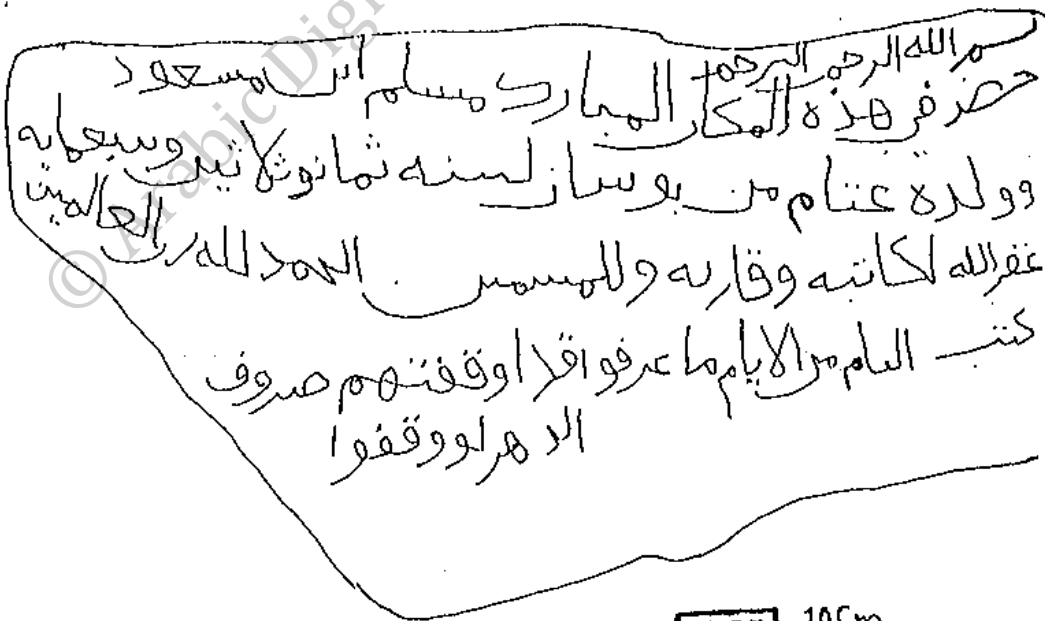 بسم الله الرحمن الرحيم
حضر في هذه المكان المبارك مسلم ابن مسعود
وولده غنام من لسنه ثمانوثلاثين وسبعمايه
غفر الله لكاتبه وقاريه وللمسمين الحمد لله رب العالمين
كتب من الايام ما عرفوا قد اوقفتهم صروف
الدهر لو وقفوا
© Arabic Dig
10Cm